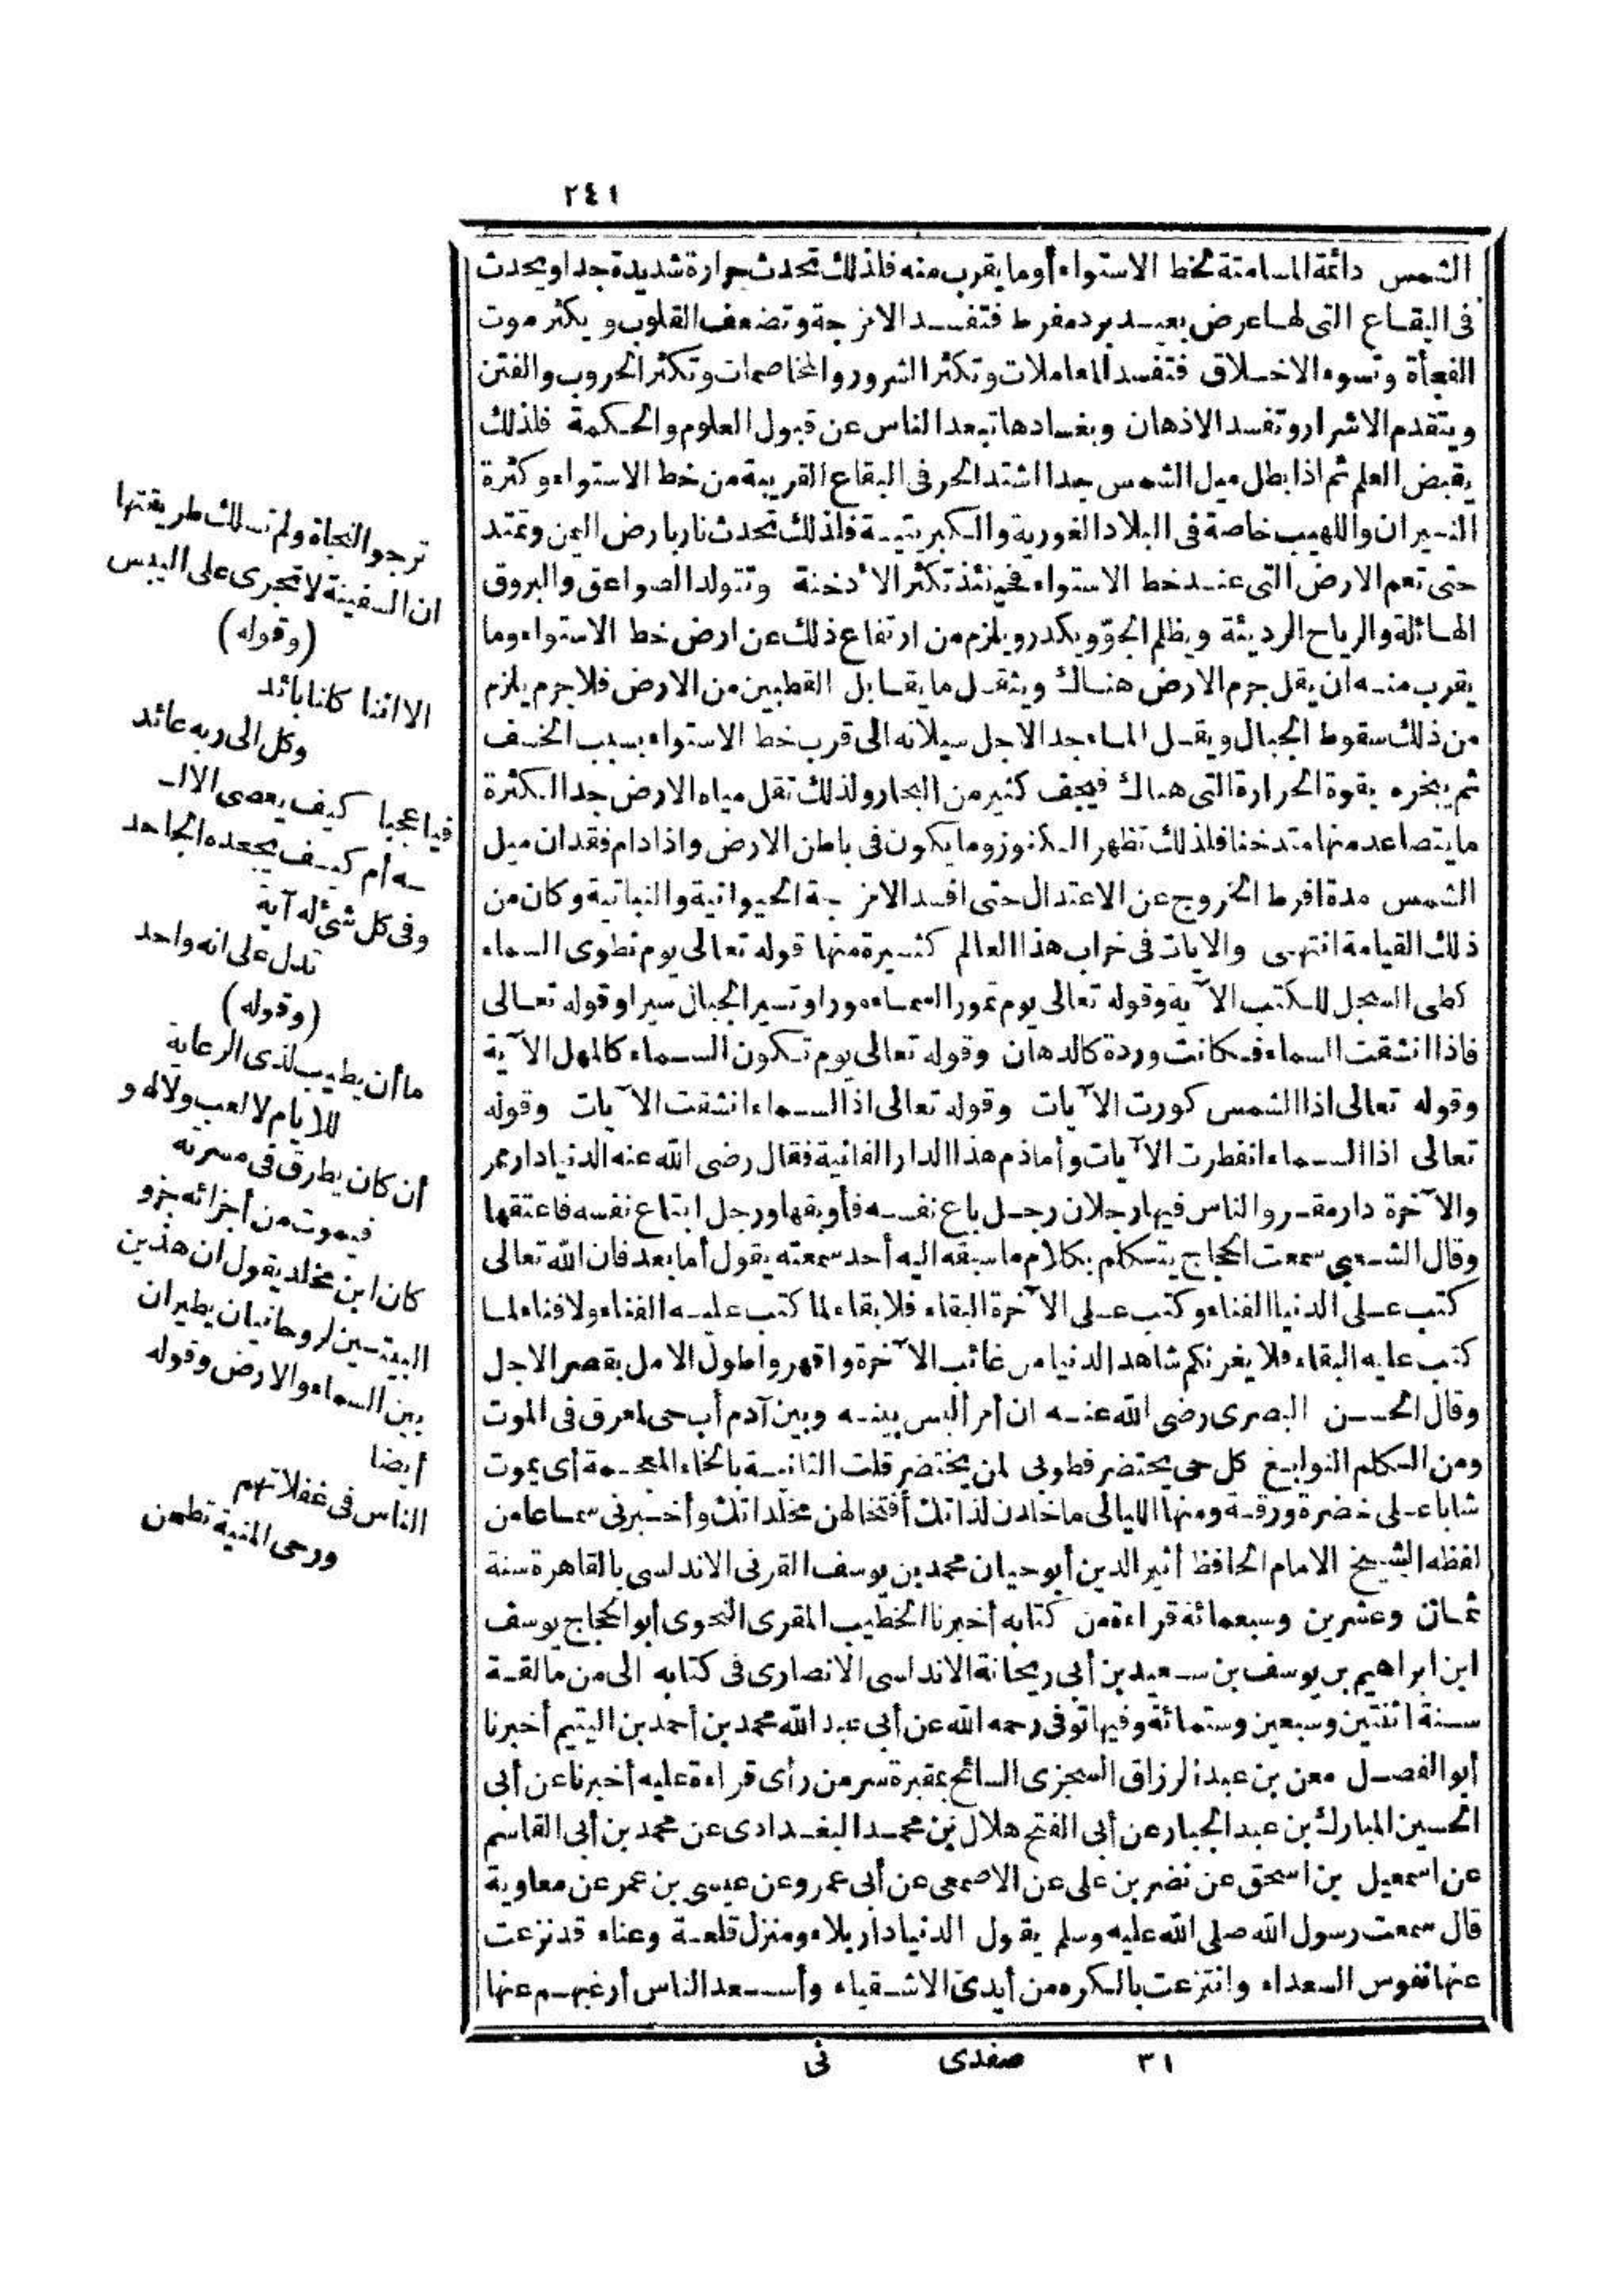 ٢٤١
الشمس دائمة المسامتة لخط الاستواء أوما يقرب منه فلذلك تحدث حرارة شديدة جدا ويحدث
فى البقاع التى لها عرض بعيد برد مفرط فتفسد الامزجة وتضعف القلوب ويكثر موت
الفجأة وتسوء الاخلاق فتفسد المعاملات وتكثر الشرور والمخاصمات وتكثر الحروب والفتن
ويتقدم الاشرار وتفسد الاذهان وبفسادها تبعد الناس عن قبول العلوم والحكمة فلذلك
يقبض العلم ثم اذا بطل ميل الشمس جدا اشتد الحر فى البقاع القريبة من خط الاستواء وكثرة
النيران واللهيب خاصة فى البلاد الغورية والكبريتية فلذلك تحدث نار بارض اليمن وتمتد
حتى تعم الارض التى عند خط الاستواء فحينئذ تكثر الأدخنة وتتولد الصواعق والبروق
الهائلة والرياح الرديئة ويظلم الجوّ ويكدر ويلزم من ارتفاع ذلك عن ارض خط الاستواء وما
يقرب منه ان يقل جرم الارض هناك ويثقل ما يقابل القطبين من الارض فلا جرم يلزم
من ذلك سقوط الجبال ويقل الماء جدا لاجل سيلانه الى قرب خط الاستواء بسبب الخسف
ثم يبخره بقوة الحرارة التى هناك فيجف كثير من البحار ولذلك تقل مياه الارض جدا لكثرة
ما يتصاعد منها متدخنا فلذلك تظهر الكنوز وما يكون فى باطن الارض واذا دام فقدان ميل
الشمس مدة افرط الخروج عن الاعتدال حتى افسد الامزجة الحيوانية والنباتية وكان من
ذلك القيامة انتهى والايات فى خراب هذا العالم كثيرة منها قوله تعالى يوم نطوى السماء
كطى السجل للكتب الآية وقوله تعالى يوم تمور السماء مورا وتسير الجبال سيرا وقوله تعالى
فاذا انشقت السماء فكانت وردة كالدهان وقوله تعالى يوم تكون السماء كالمهل الآية
وقوله تعالى اذا الشمس كورت الآيات وقوله تعالى اذا السماء انشقت الآيات وقوله
تعالى اذا السماء انفطرت الآيات وأماذم هذا الدار الفانية فقال رضى الله عنه الدنيا دار ممر
والآخرة دار مقر والناس فيها رجلان رجل باع نفسه فأوبقها ورجل ابتاع نفسه فاعتقها
وقال الشعبى سمعت الحجاج يتكلم بكلام ما سبقه اليه أحد سمعته يقول أما بعد فان الله تعالى
كتب على الدنيا الفناء وكتب على الآخرة البقاء فلا بقاء لما كتب عليه الفناء ولا فناء لما
كتب عليه البقاء فلا يغرنكم شاهد الدنيا من غائب الآخرة واقهروا طول الامل بقصر الاجل
وقال الحسن البصرى رضى الله عنه ان أمرأ ليس بينه وبين آدم أب حى لمعرق فى الموت
ومن الكلم النوابغ كل حى يحتضر فطوبى لمن يختضر قلت الثانية بالخاء المعجمة أى يموت
شابا على خضرة ورقة ومنها الليالى ما خلدن لذاتك أفتخالهن مخلداتك وأخبرنى سماعا من
لفظه الشيخ الامام الحافظ أثير الدين أبو حيان محمد بن يوسف القرنى الاندلسى بالقاهرة سنة
ثمان وعشرين وسبعمائة قراءة من كتابه أخبرنا الخطيب المقرى النحوى أبو الحجاج يوسف
ابن ابراهيم بن يوسف بن سعيد بن أبى ريحانة الاندلسى الانصارى فى كتابه الى من مالقة
سنة اثنتين وسبعين وستمائة وفيها توفى رحمه الله عن أبى عبد الله محمد بن أحمد بن اليتيم أخبرنا
أبو الفصل معن بن عبد الرزاق السجزى السائح بمقبرة سر من رأى قراءة عليه أخبرنا عن أبى
الحسين المبارك بن عبد الجبار عن أبى الفتح هلال بن محمد البغدادى عن محمد بن أبى القاسم
عن اسمعيل بن اسحق عن نضر بن على عن الاصمعى عن أبى عمرو عن عيسى بن عمر عن معاوية
قال سمعت رسول الله صلى الله عليه وسلم يقول الدنيا دار بلاء ومنزل قلعة وعناء قد نزعت
عنها نفوس السعداء وانتزعت بالكره من أيدى الاشقياء وأسعد الناس أرغبهم عنها
ترجو النجاة ولم تسلك طريقتها
ان السفينة لا تجرى على اليبس
(وقوله)
الا اننا كلنا بائد
وكل الى ربه عائد
فيا عجبا كيف يعصى الالـ
ـه أم كيف يجحده الجاحد
وفى كل شئ له آية
تدل على انه واحد
(وقوله)
ما أن يطيب لذى الرعاية
للايام لا لعب ولا لهو
أن كان يطرق فى مسرته
فيموت من أجزائه جزو
كان ابن مخلد يقول ان هذين
البيتين لروحانيان يطيران
بين السماء والارض وقوله
أيضا
الناس فى غفلاتهم
ورحى المنية تطحن
٣١ صفدى نى